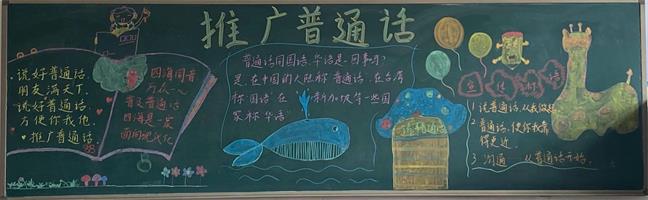 推广普通话
·说好普通话,
朋友满天下,
说好普通话
方便你我他,
·推广普通话
四海同音
万众一心
普及普通话
四海是一家
面向现代化
普通话同国语、华语是一回事吗?
是,在中国的大陆称普通话,在台湾
称国语,在新加坡等一些国
家称华语
宣传标语
1 说普通话,从我做起。
2 普通话,使你我靠
得更近
3 沟通 从普通话开始。